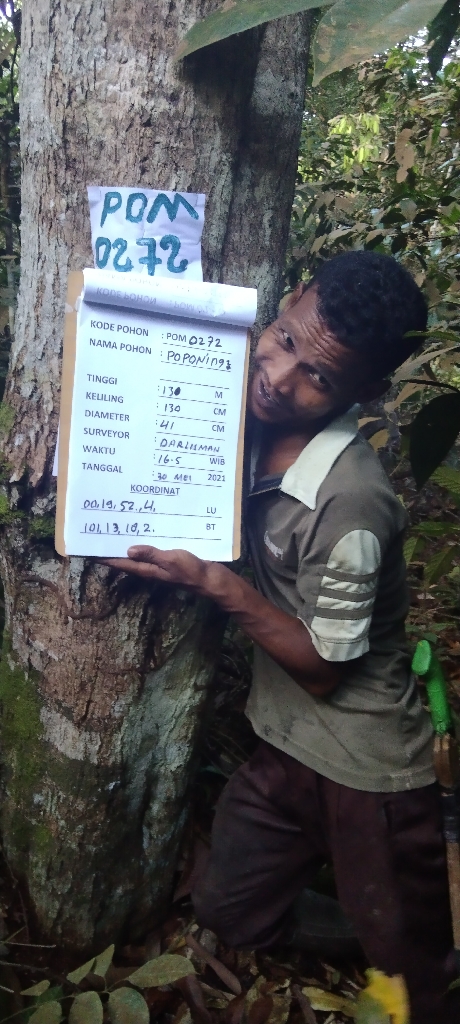 POM
0272
KODE POHON : POM 0272
NAMA POHON :
TINGGI : 130 M
KELILING : 130 CM
DIAMETER : 41 CM
SURVEYOR : DARLISMAN
WAKTU : 16.5 WIB
TANGGAL : 30 MEI 2021
KOORDINAT
00,19,52,,4, LU
101,13,10,2. BT